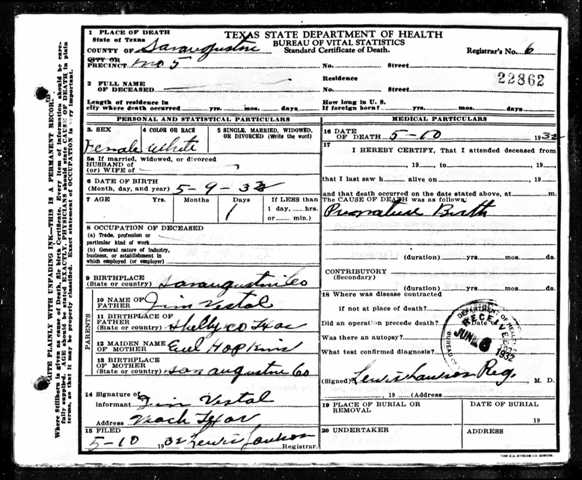 TEXAS STATE DEPARTMENT OF HEALTH
BUREAU OF VITAL STATISTICS
Standard Certificate of Death.
Registrar's No. 6
1 PLACE OF DEATH
State of Texas
COUNTY OF Sanaugustine
CITY OR
PRECINCT no 5
No. Street
2 FULL NAME
OF DECEASED
Residence
No. Street
22862
Length of residence in
city where death occurred yrs. mos. days
How long in U. S.
if foreign born? yrs. mos. days
PERSONAL AND STATISTICAL PARTICULARS
3. SEX
Female
4 COLOR OR RACE
White
5 SINGLE, MARRIED, WIDOWED,
OR DIVORCED (Write the word)
5a If married, widowed, or divorced
HUSBAND OF
(or) WIFE OF
6 DATE OF BIRTH
(Month, day, and year) 5-9-32
7 AGE Yrs. Months Days
1
If LESS than
1 day, hrs.
or min.
8 OCCUPATION OF DECEASED
(a) Trade, profession or
particular kind of work
(b) General nature of industry,
business, or establishment in
which employed (or employer)
9 BIRTHPLACE
(State or country) Sanaugustine Co
PARENTS
10 NAME OF
FATHER Jim Vestal
11 BIRTHPLACE OF FATHER
(State or country) Shelby co Texas
12 MAIDEN NAME
OF MOTHER Hopkins
13 BIRTHPLACE OF MOTHER
(State or country) San augustine Co
14 Signature of
Informant Jim Vestal
Address Texas
15 FILED
5-10 1932 Lewis Lawson
Registrar.
MEDICAL PARTICULARS
16 DATE
OF DEATH 5-10 1932
17
I HEREBY CERTIFY, That I attended deceased from
19 to 19
that I last saw h alive on 19
and that death occurred on the date stated above, at m.
The CAUSE OF DEATH was as follows:
Premature Birth
(duration) yrs. mos. ds.
CONTRIBUTORY
(Secondary)
(duration) yrs. mos. ds.
18 Where was disease contracted
if not at place of death?
Did an operation precede death? Date of
Was there an autopsy?
What test confirmed diagnosis?
(Signed) Lewis Lawson Reg. M. D.
19 (Address)
DEPARTMENT OF HEALTH
RECEIVED
JUN 1932
19 PLACE OF BURIAL OR
REMOVAL
DATE OF BURIAL
19
20 UNDERTAKER
ADDRESS
WRITE PLAINLY WITH UNFADING INK—THIS IS A PERMANENT RECORD.